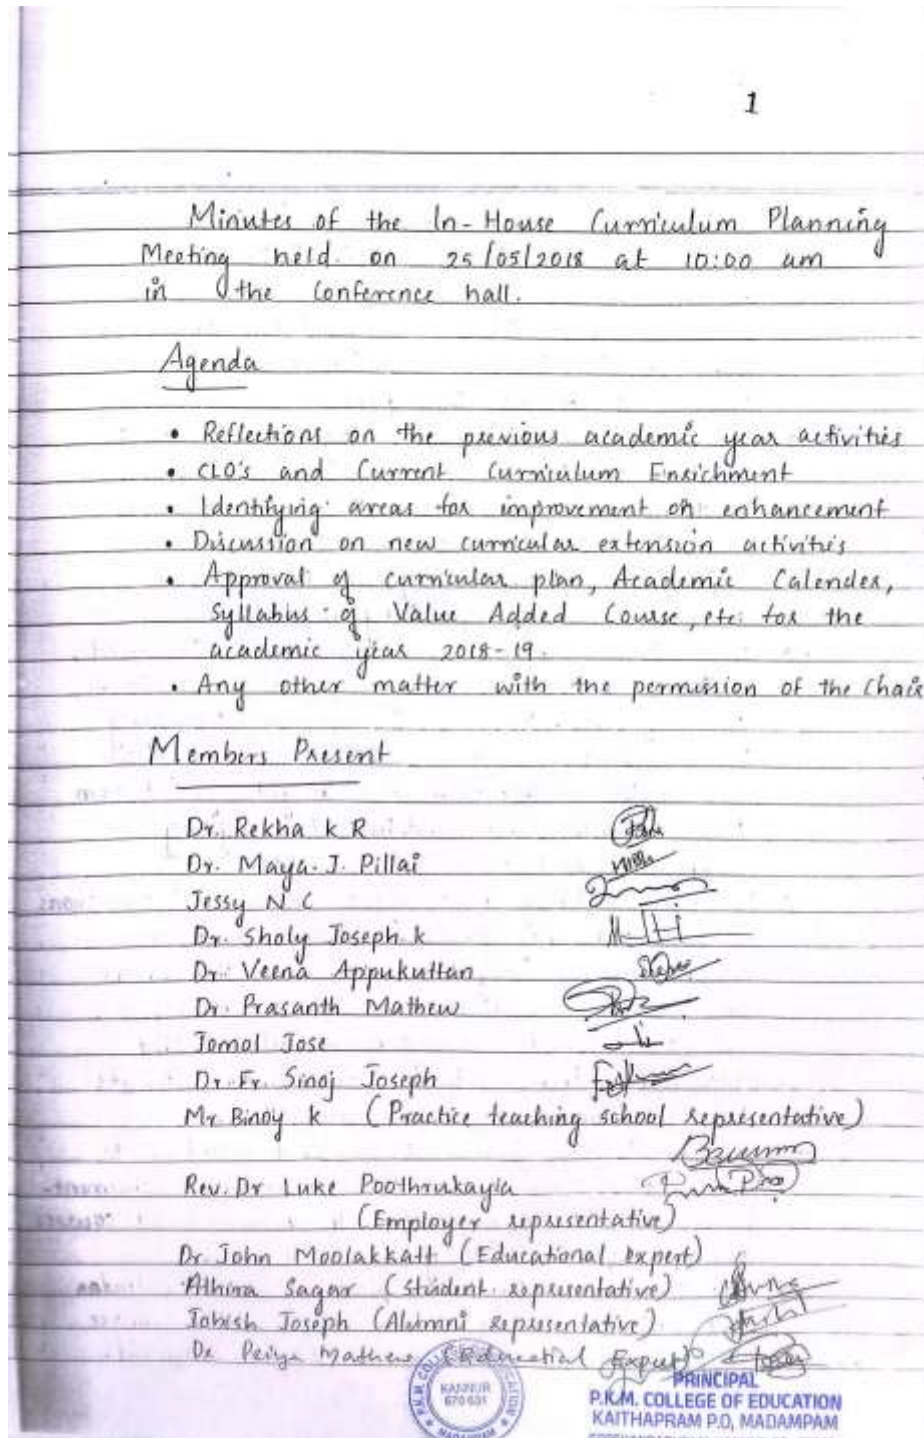 1
Minutes of the In-House Curriculum Planning
Meeting held on 25/05/2018 at 10:00 am
in the Conference hall.
Agenda
• Reflections on the previous academic year activities
• CLO's and Current Curriculum Enrichment
• Identifying areas for improvement or enhancement
• Discussion on new curricular extension activities
• Approval of curricular plan, Academic Calender,
Syllabus of Value Added Course, etc. for the
academic year 2018-19.
• Any other matter with the permission of the Chair
Members Present
Dr. Rekha K R
Dr. Maya. J. Pillai
Jessy N C
Dr. Sholy Joseph. K
Dr. Veena Appukuttan
Dr. Prasanth Mathew
Jomol Jose
Dr. Fr. Sinoj Joseph
Mr Binoy K (Practice teaching school representative)
Rev. Dr Luke Poothrukayla
(Employer representative)
Dr. John Moolakkatt (Educational expert)
Athira Sagar (Student representative)
Jobish Joseph (Alumni Representative)
Dr Priya Mathew (Educational Expert)
KANNUR
670 631
MADAMPAM
PRINCIPAL
P.K.M. COLLEGE OF EDUCATION
KAITHAPRAM P.O, MADAMPAM